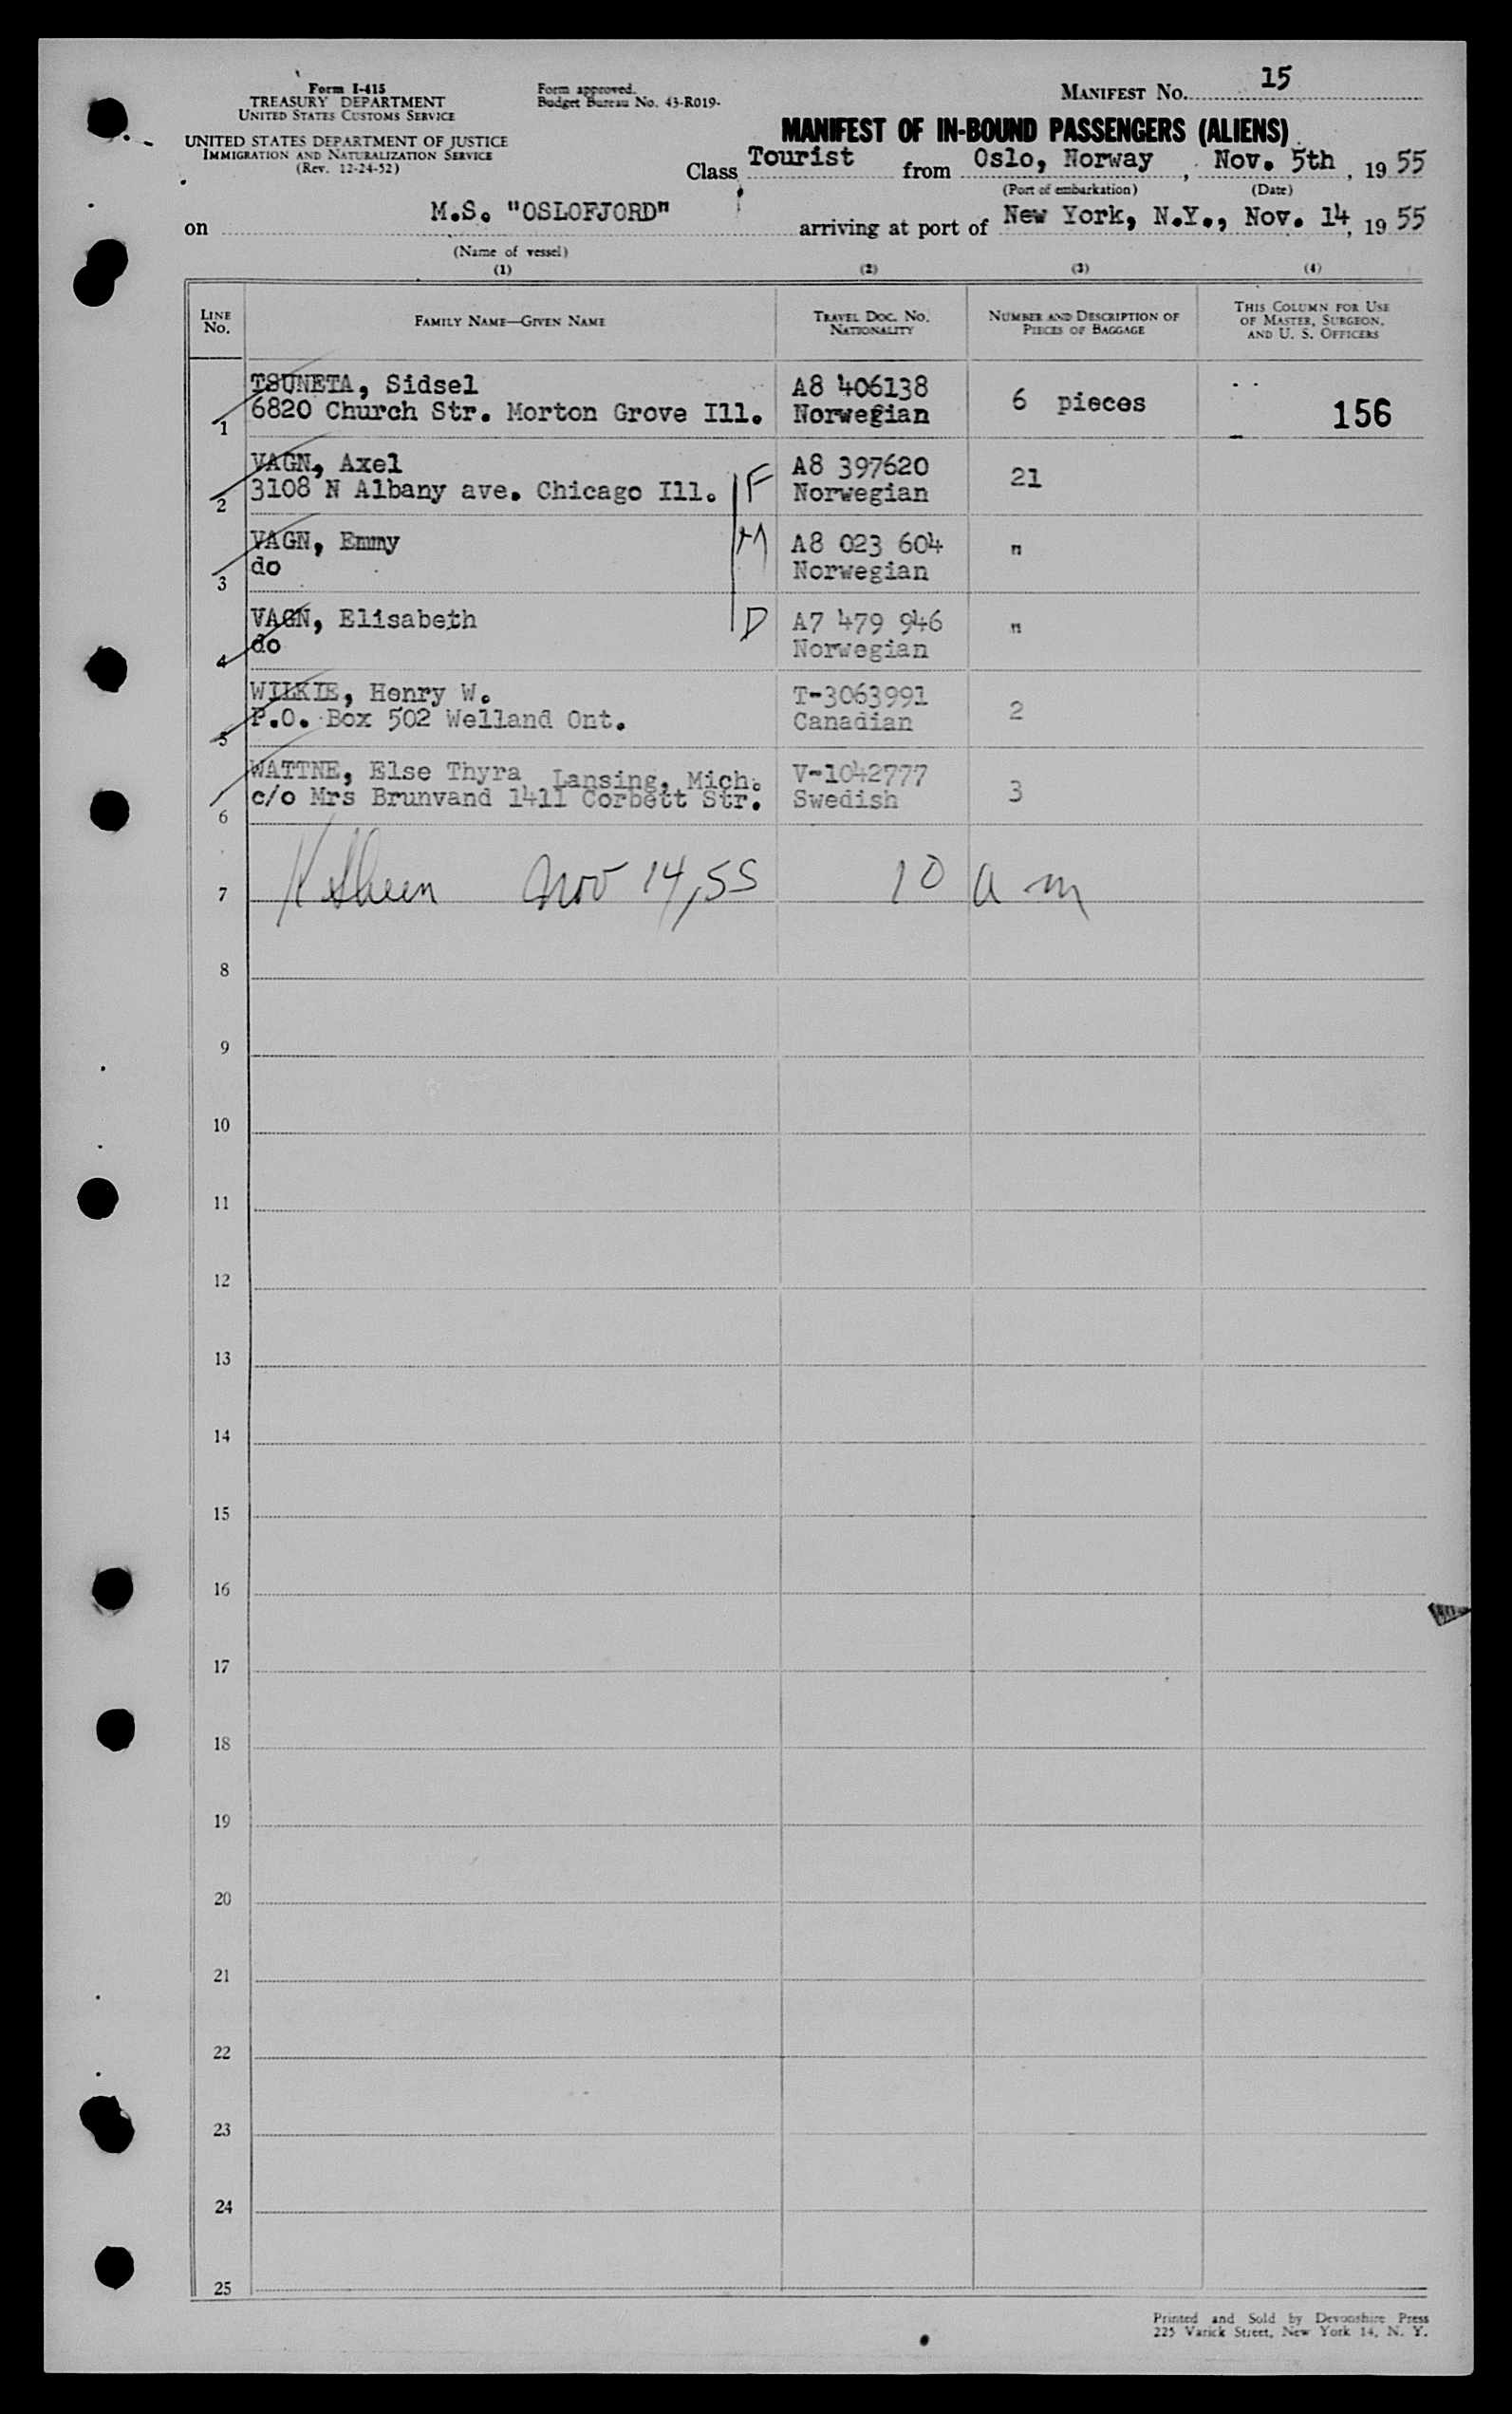 Form I-415
TREASURY DEPARTMENT
UNITED STATES CUSTOMS SERVICE
UNITED STATES DEPARTMENT OF JUSTICE
IMMIGRATION AND NATURALIZATION SERVICE
(Rev. 12-24-52)
Form approved.
Budget Bureau No. 43-R019-
MANIFEST No. 15
MANIFEST OF IN-BOUND PASSENGERS (ALIENS)
Class Tourist from Oslo, Norway, Nov. 5th, 1955
(Port of embarkation) (Date)
on M.S. "OSLOFJORD" arriving at port of New York, N.Y., Nov. 14, 1955
(Name of vessel)
(1) (2) (3) (4)
LINE No. FAMILY NAME—GIVEN NAME TRAVEL DOC. No. NATIONALITY NUMBER AND DESCRIPTION OF PIECES OF BAGGAGE THIS COLUMN FOR USE OF MASTER, SURGEON, AND U. S. OFFICERS
TSUNETA, Sidsel A8 406138
1 6820 Church Str. Morton Grove Ill. Norwegian 6 pieces 156
VAGN, Axel A8 397620
2 3108 N Albany ave. Chicago Ill. F Norwegian 21
VAGN, Emmy M A8 023 604 "
3 do Norwegian
VAGN, Elisabeth D A7 479 946 "
4 do Norwegian
WILKIE, Henry W. T-3063991
5 P.O. Box 502 Welland Ont. Canadian 2
WATTNE, Else Thyra Lansing, Mich. V-1042777
6 c/o Mrs Brunvand 1411 Corbett Str. Swedish 3
7 Nov 14, 55 10 a m
8
9
10
11
12
13
14
15
16
17
18
19
20
21
22
23
24
25
Printed and Sold by Devonshire Press
225 Varick Street, New York 14, N. Y.